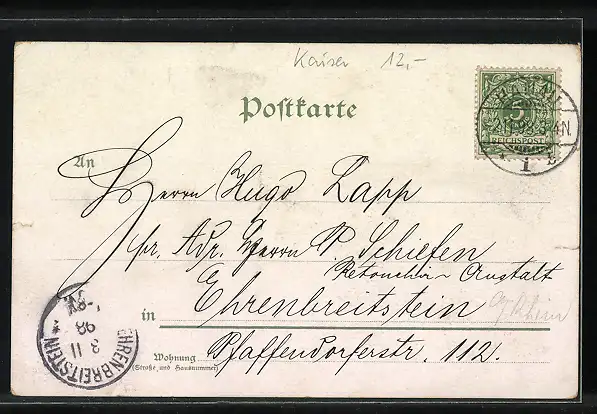 Kaiser 12,-
Postkarte
5
REICHSPOST
An
Herrn Hugo Lapp
pr. Adr. Herrn P. Schiefen
Retouchir-Anstalt
in Ehrenbreitstein
am Rhein
Wohnung Pfaffendorferstr. 112.
(Straße und Hausnummer)
EHRENBREITSTEIN
3 11
98